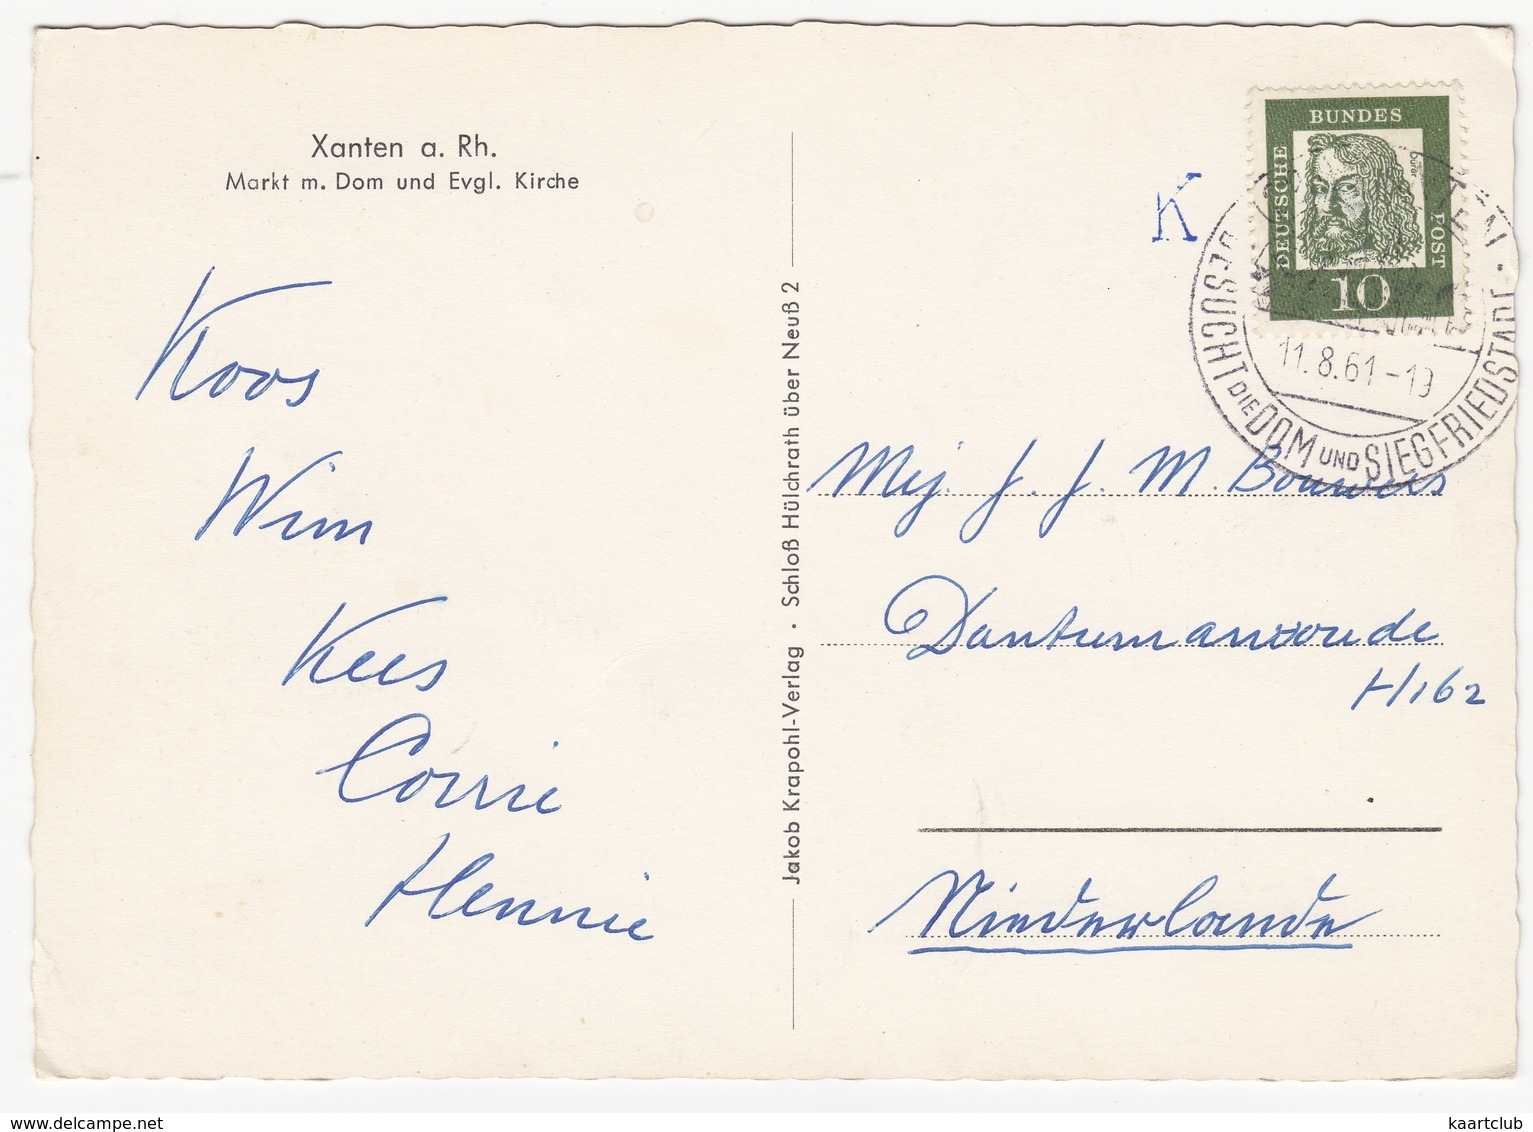 Xanten a. Rh.
Markt m. Dom und Evgl. Kirche
Koos
Wim
Kees
Corrie
Hennie
Jakob Krapohl-Verlag · Schloß Hülchrath über Neuß 2
K
DEUTSCHE
BUNDES
POST
dürer
10
11.8.61-19
BESUCHT DIE DOM UND SIEGFRIEDSTADT
Mej. J. J. M. Bouwers
Dantumawoude
H/162
Niederlande
delcampe.net
kaartclub